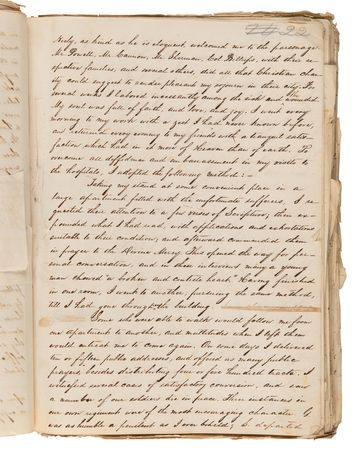 22
Neely, as kind as he is eloquent welcomed me to the parsonage
Mr Powell, Mr Cannon, Mr Sherman, Col Billups, with their re-
spective families, and several others, did all that Christian cha-
rity could suggest to render pleasant my sojourn in their city. For
several weeks I labored incessantly among the sick and wounded.
My soul was full of faith, and love, and joy. I went every
morning to my work with a zest I had never known before,
and returned every evening to my friends with a tranquil satis-
faction which had in it more of Heaven than of earth. To
overcome all diffidence and embarrassment in my visits to
the hospitals, I adopted the following method:—
Taking my stand at some convenient place in a
large apartment filled with the unfortunate sufferers, I re-
quested their attention to a few verses of Scripture, then ex-
pounded what I had read, with applications and exhortations
suitable to their condition, and afterward commended them
in prayer to the Divine Mercy. This opened the way for per-
sonal conversation, and in these interviews many a young
man showed a broken and contrite heart. Having finished
in one room, I went to another, pursuing the same method,
till I had gone through the building.
Some who were able to walk would follow me from
one apartment to another, and multitudes when I left them
would entreat me to come again. On some days I delivered
ten or fifteen public addresses, and offered as many public
prayers, besides distributing four or five hundred tracts. I
witnessed several cases of satisfactory conversion, and saw
a number of our soldiers die in peace. Three instances in
our own regiment were of the most encouraging character. G.
was as humble a penitent as I ever beheld; S. departed